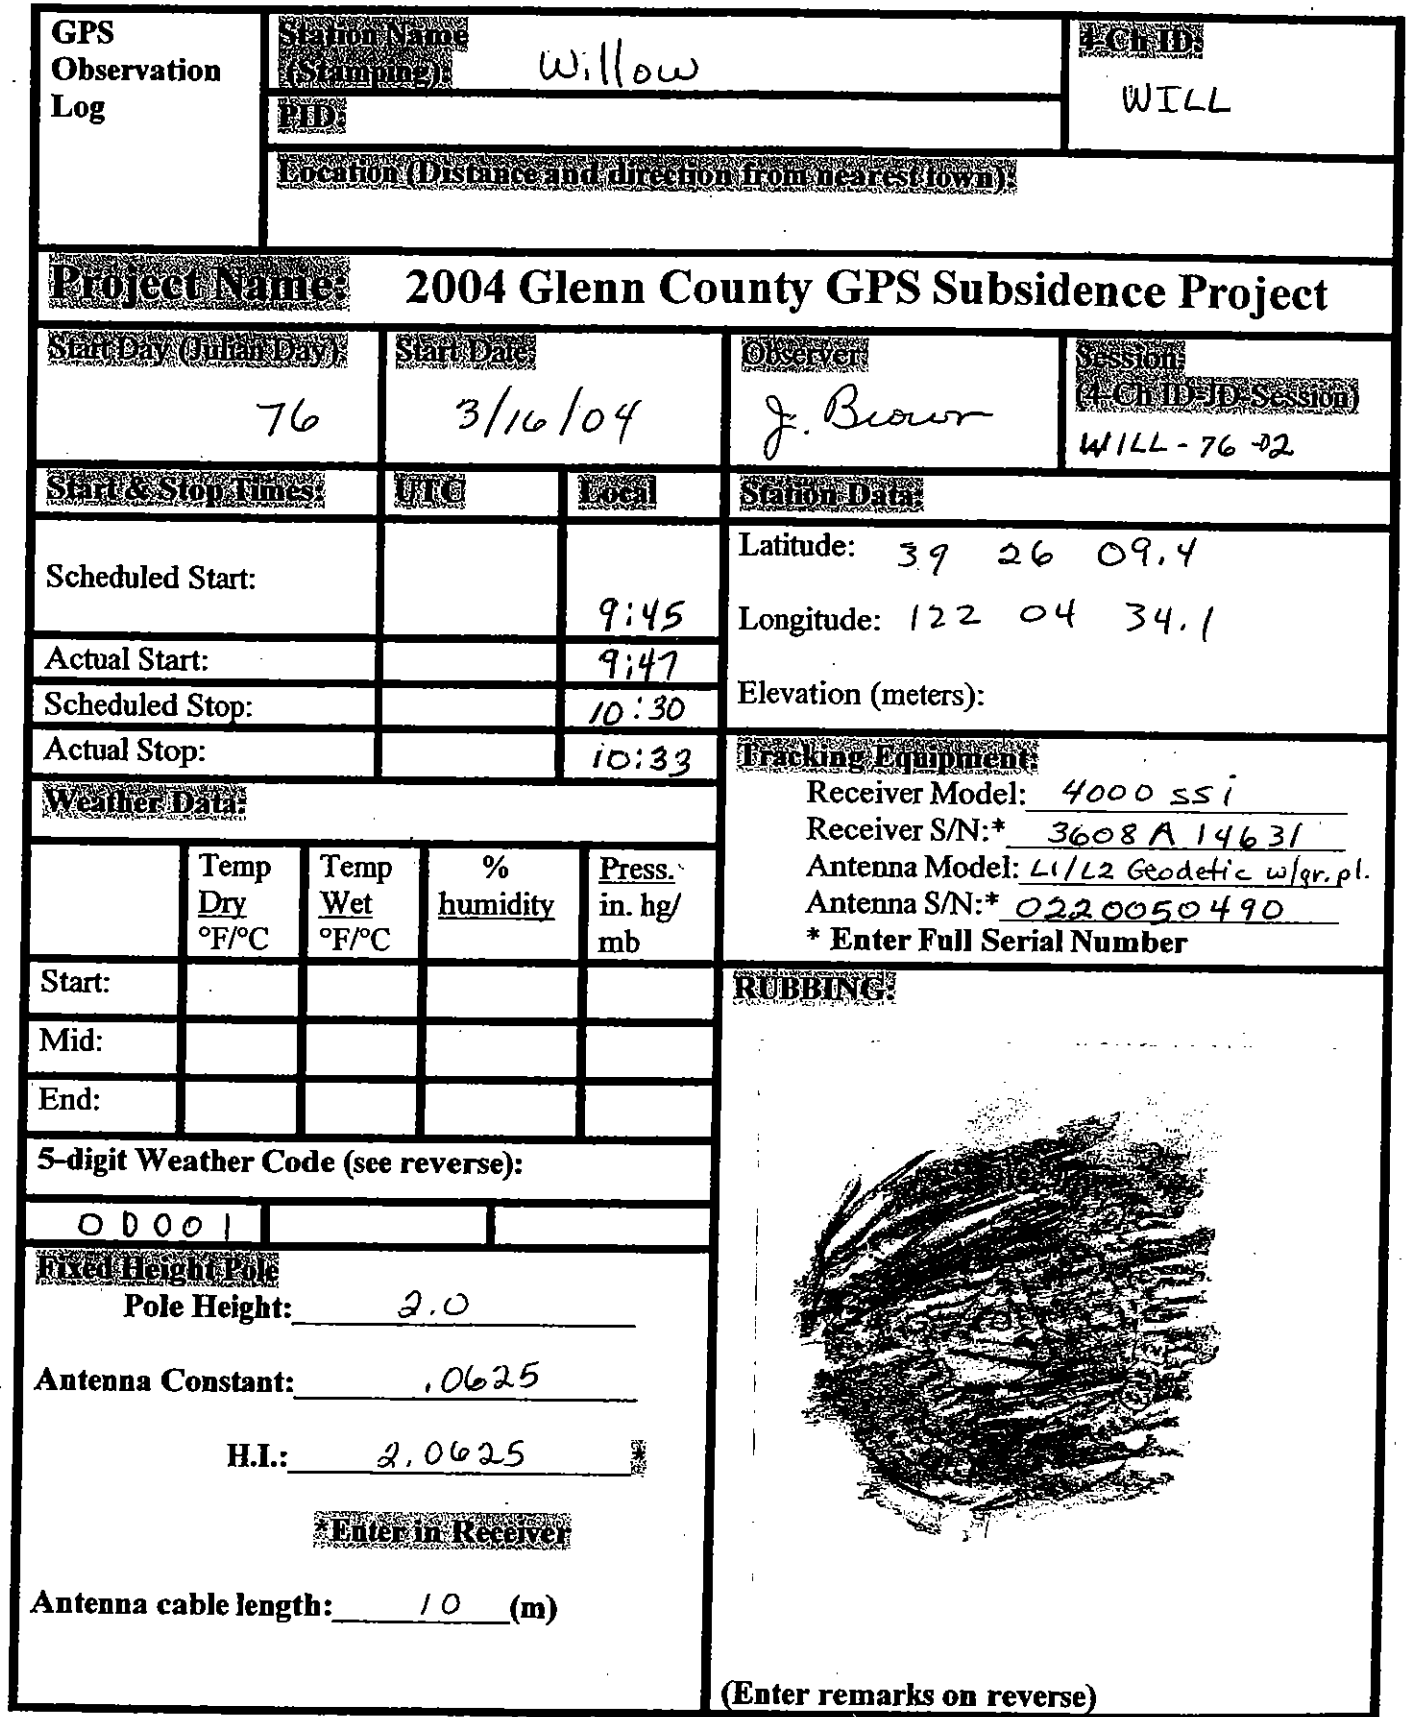 GPS
Observation
Log
Station Name
(Stamping): Willow
4-Ch ID:
WILL
PID:
Location (Distance and direction from nearest town):
Project Name: 2004 Glenn County GPS Subsidence Project
Start Day (Julian Day)
76
Start Date
3/16/04
Observer
J. Brown
Session:
(4-Ch ID-JD-Session)
WILL-76-02
Start & Stop Times: UTC Local
Scheduled Start: 9:45
Actual Start: 9:47
Scheduled Stop: 10:30
Actual Stop: 10:33
Station Data:
Latitude: 39 26 09.4
Longitude: 122 04 34.1
Elevation (meters):
Tracking Equipment:
Receiver Model: 4000 ssi
Receiver S/N:* 3608A14631
Antenna Model: L1/L2 Geodetic w/gr.pl.
Antenna S/N:* 0220050490
* Enter Full Serial Number
Weather Data:
Temp Dry °F/°C
Temp Wet °F/°C
% humidity
Press. in. hg/ mb
Start:
Mid:
End:
5-digit Weather Code (see reverse):
00001
Fixed Height Pole
Pole Height: 2.0
Antenna Constant: .0625
H.I.: 2.0625 *
*Enter in Receiver
Antenna cable length: 10 (m)
RUBBING:
(Enter remarks on reverse)